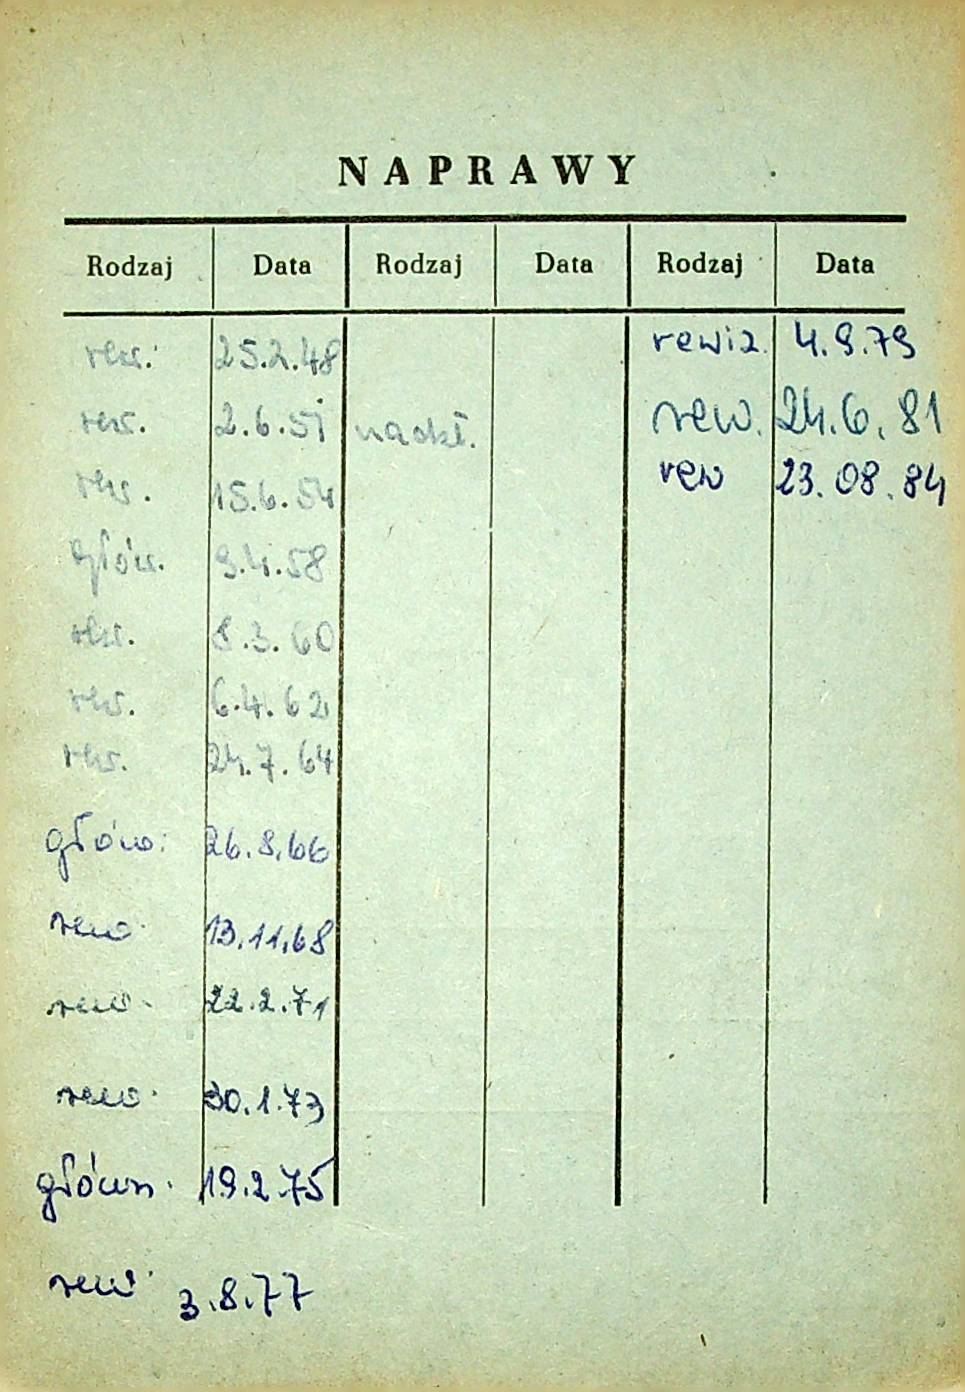 NAPRAWY
Rodzaj Data Rodzaj Data Rodzaj Data
rew. 25.2.48 rewiz. 4.9.79
rew. 2.6.51 nadkł. rew. 24.6.81
rew. 15.6.54 rew 23.08.84
głów. 9.4.58
rew. 8.3.60
rew. 6.4.62
rew. 24.7.64
głów. 26.8.66
rew. 13.11.68
rew. 22.2.71
rew. 30.1.73
główn. 19.2.75
rew. 3.8.77